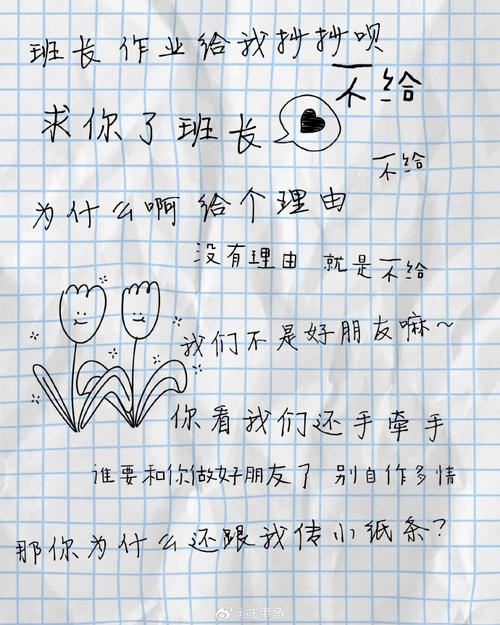 班长 作业给我抄抄呗
不给
求你了班长
不给
为什么啊 给个理由
没有理由 就是不给
我们不是好朋友嘛~
你看我们还手牵手
谁要和你做好朋友了 别自作多情
那你为什么还跟我传小纸条?